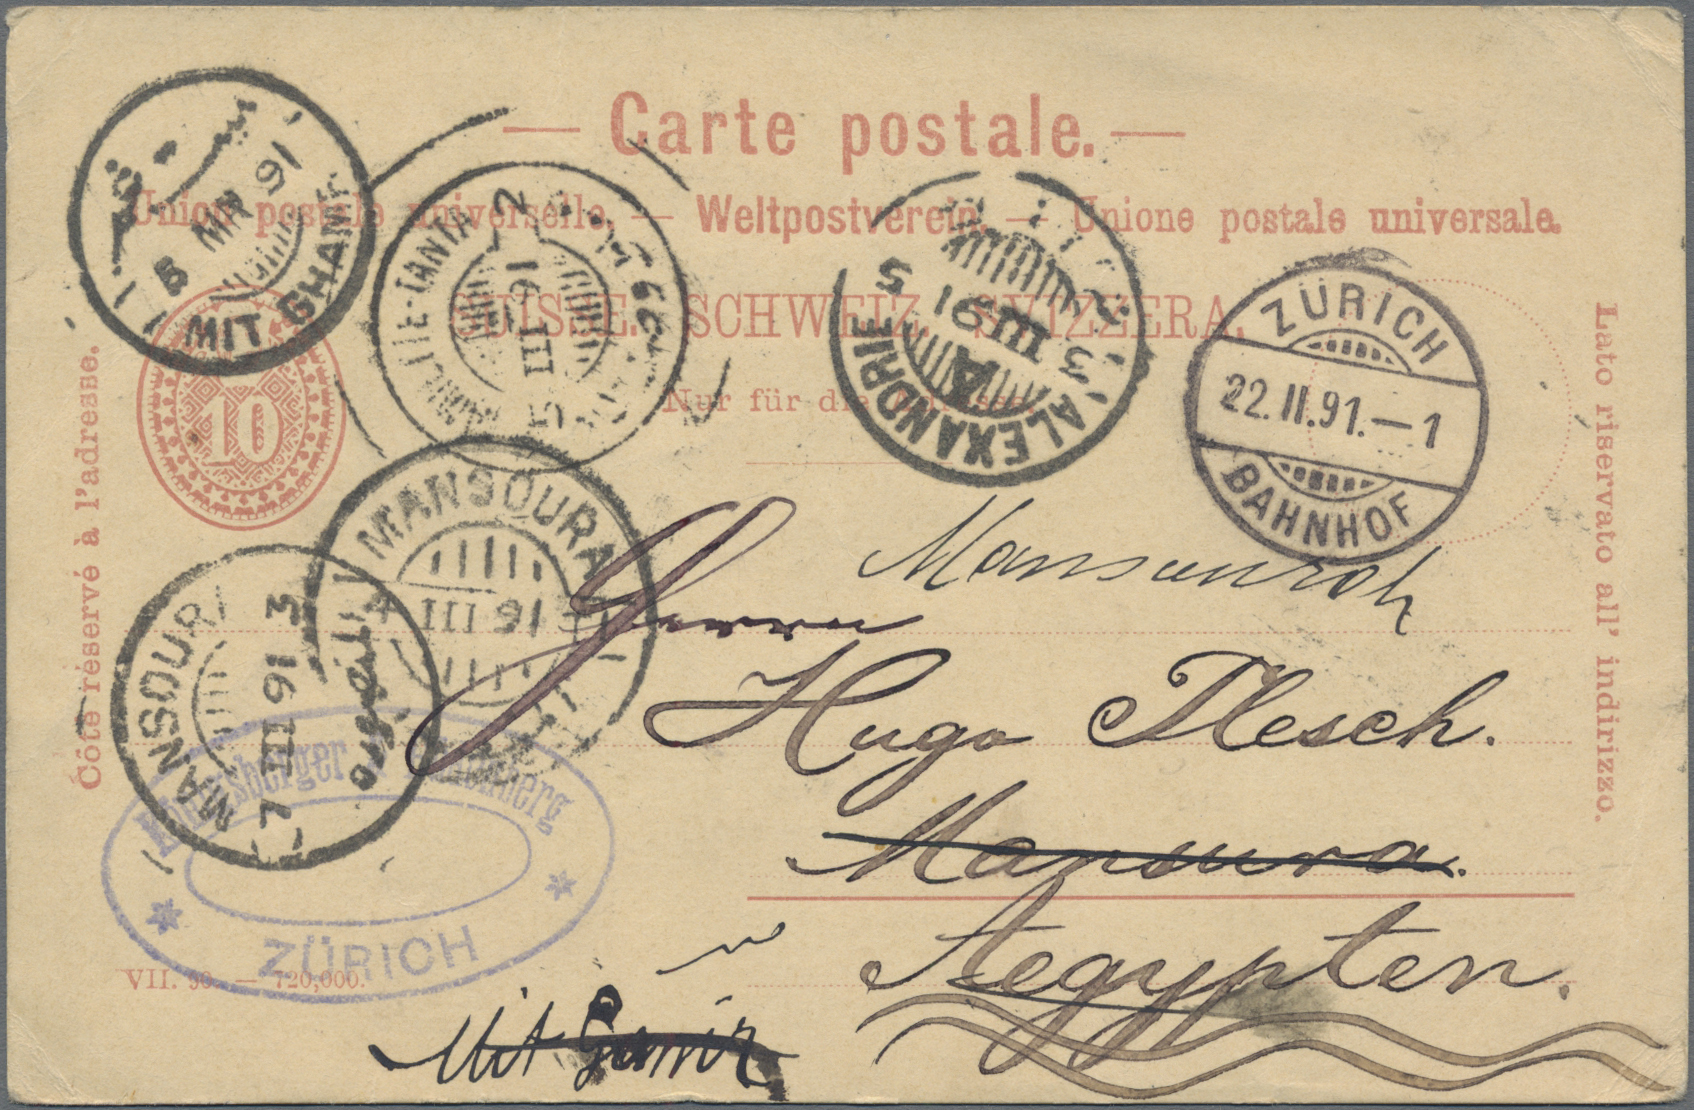 — Carte postale. —
Union postale universelle. — Weltpostverein. — Unione postale universale.
SUISSE. SCHWEIZ. SVIZZERA.
Nur für die Adresse.
Côté réservé à l'adresse.
Lato riservato all' indirizzo.
10
MIT GHAMR
5 MR 91
TANTA 2
5 III 91
ALEXANDRIE
3 III 91 5
A
ZÜRICH
22.II.91.—1
BAHNHOF
MANSOURA
III 91
MANSOUR
III 91 3
ZÜRICH
VII. 90. — 720,000.
Mansourah
Herrn
Hugo Flesch.
Mansura.
Aegypten.
Mit Gamr